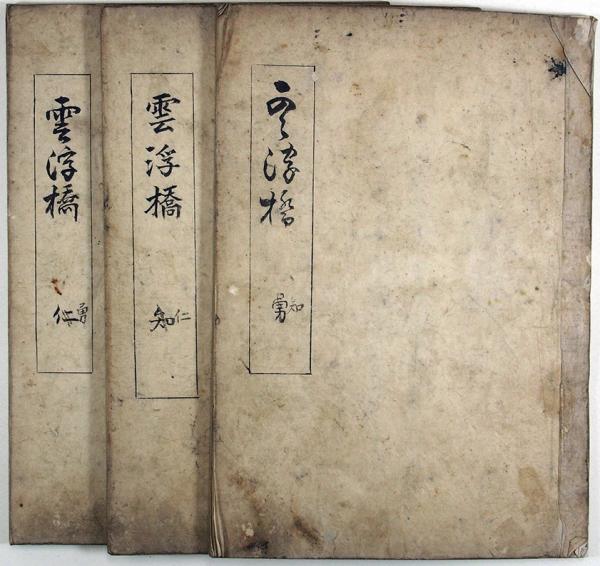 雲浮橋
勇 知
雲浮橋
知 仁
雲浮橋
仁 勇